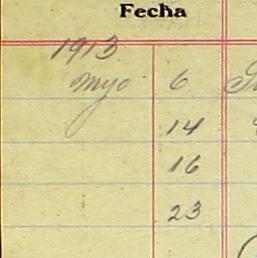 Fecha
1913
Myo 6
14
16
23